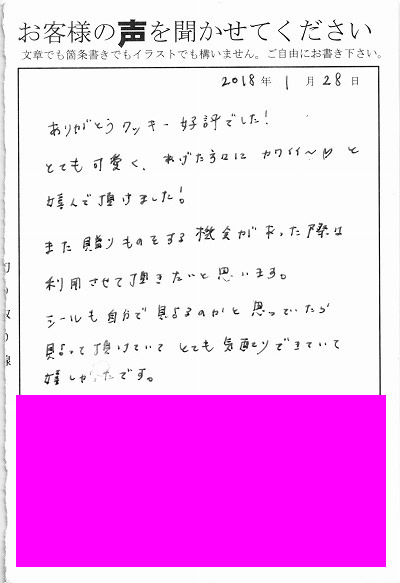 お客様の声を聞かせてください
文章でも箇条書きでもイラストでも構いません。ご自由にお書き下さい。
2018年 1月28日
ありがとうクッキー好評でした！
とても可愛く、あげた方々に カワイイ〜♡ と
喜んで頂けました！
また贈りものをする機会があった際は
利用させて頂きたいと思います。
シールも自分で貼るのかと思っていたら
貼って頂けていて とても気配りできていて
嬉しかったです。
切り取り線